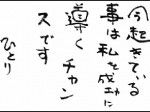 今起きている
事は私を成功に
導く チャン
スです
ひとり